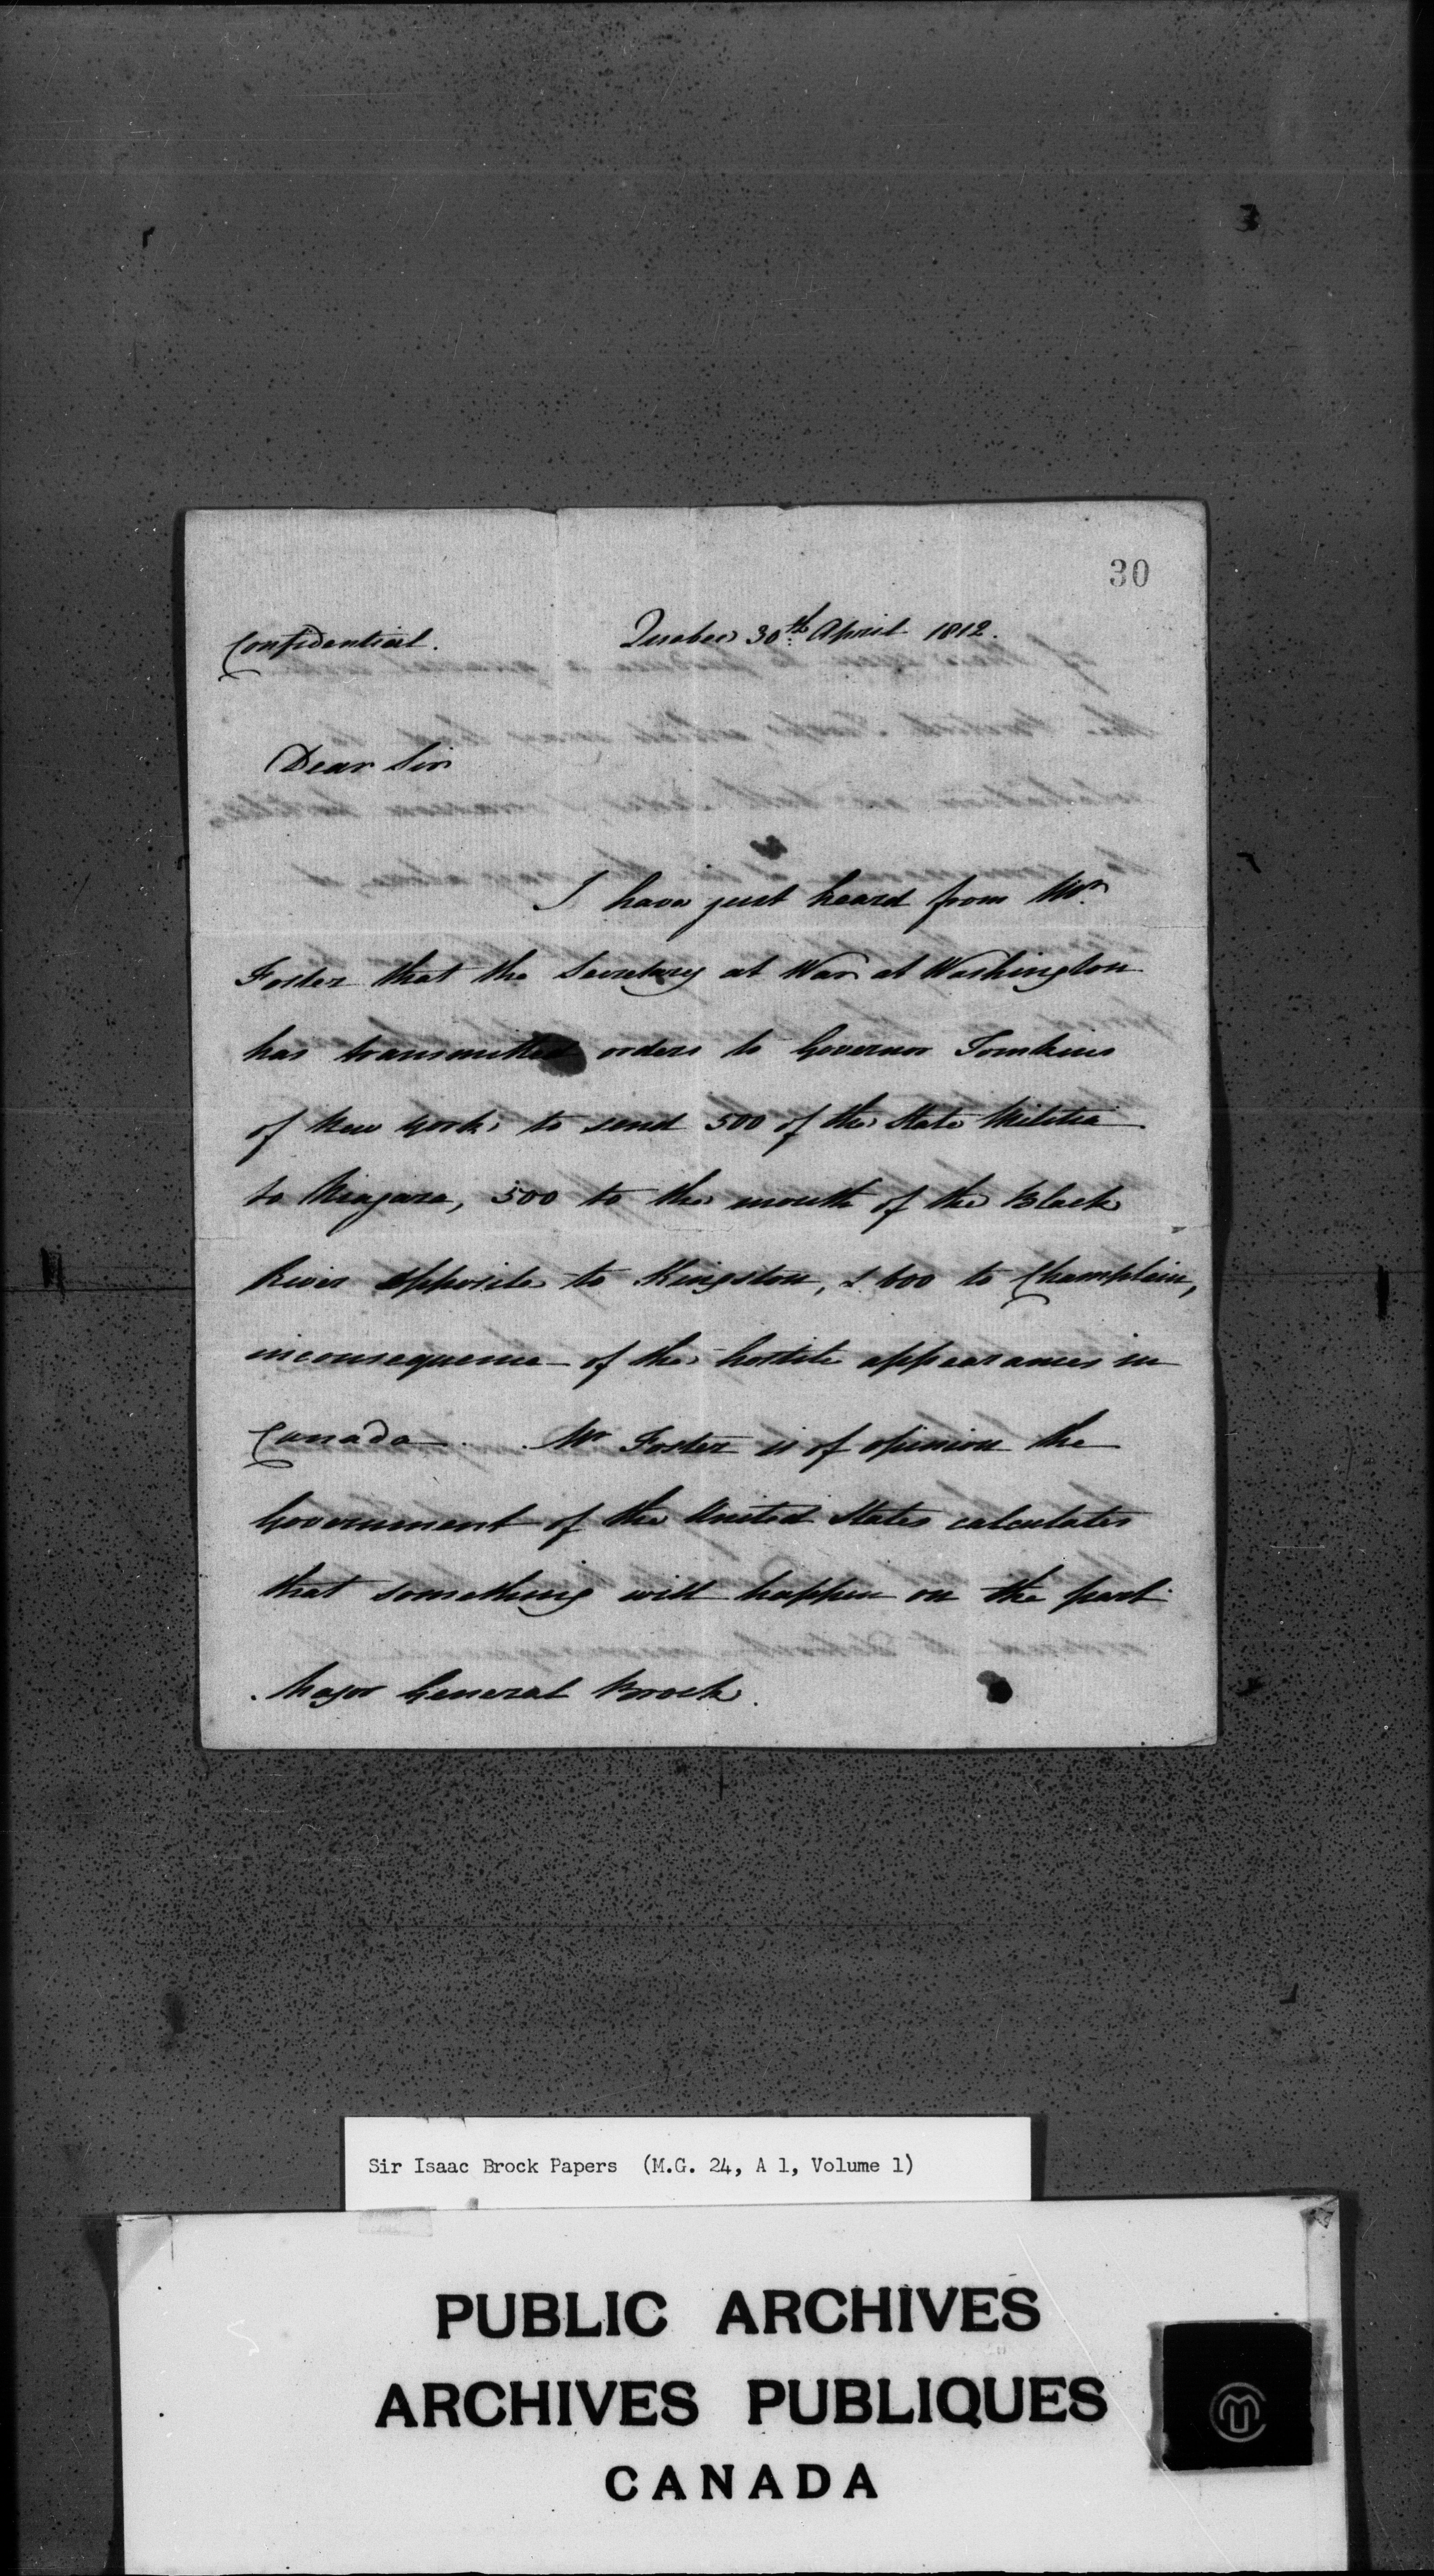 30
Confidential. Quebec 30th April 1812.
Dear Sir
I have just heard from Mr.
Foster that the Secretary at War at Washington
has transmitted orders to Governor Tomkins
of New York, to send 500 of the State Militia
to Niagara, 500 to the mouth of the Black
River opposite to Kingston, & 600 to Champlain,
inconsequence of the hostile appearances in
Canada. Mr Foster is of opinion the
Government of the United States calculates
that something will happen on the part
Major General Brock.
Sir Isaac Brock Papers (M.G. 24, A 1, Volume 1)
PUBLIC ARCHIVES
ARCHIVES PUBLIQUES
CANADA